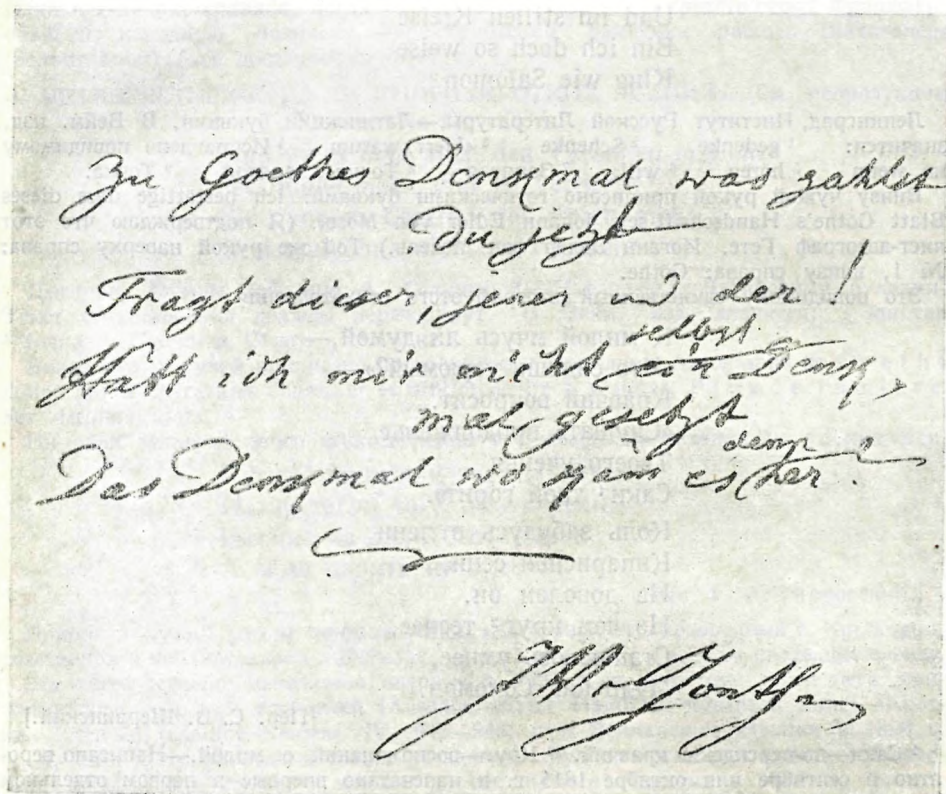 Zu Goethes Denkmal was zahlst
du jetzt
Fragt dieser, jener und der!
selbst
Hätt ich mir nicht ein Denk-
mal gesetzt
denn
Das Denkmal wo käm es her?
JWvGoethe